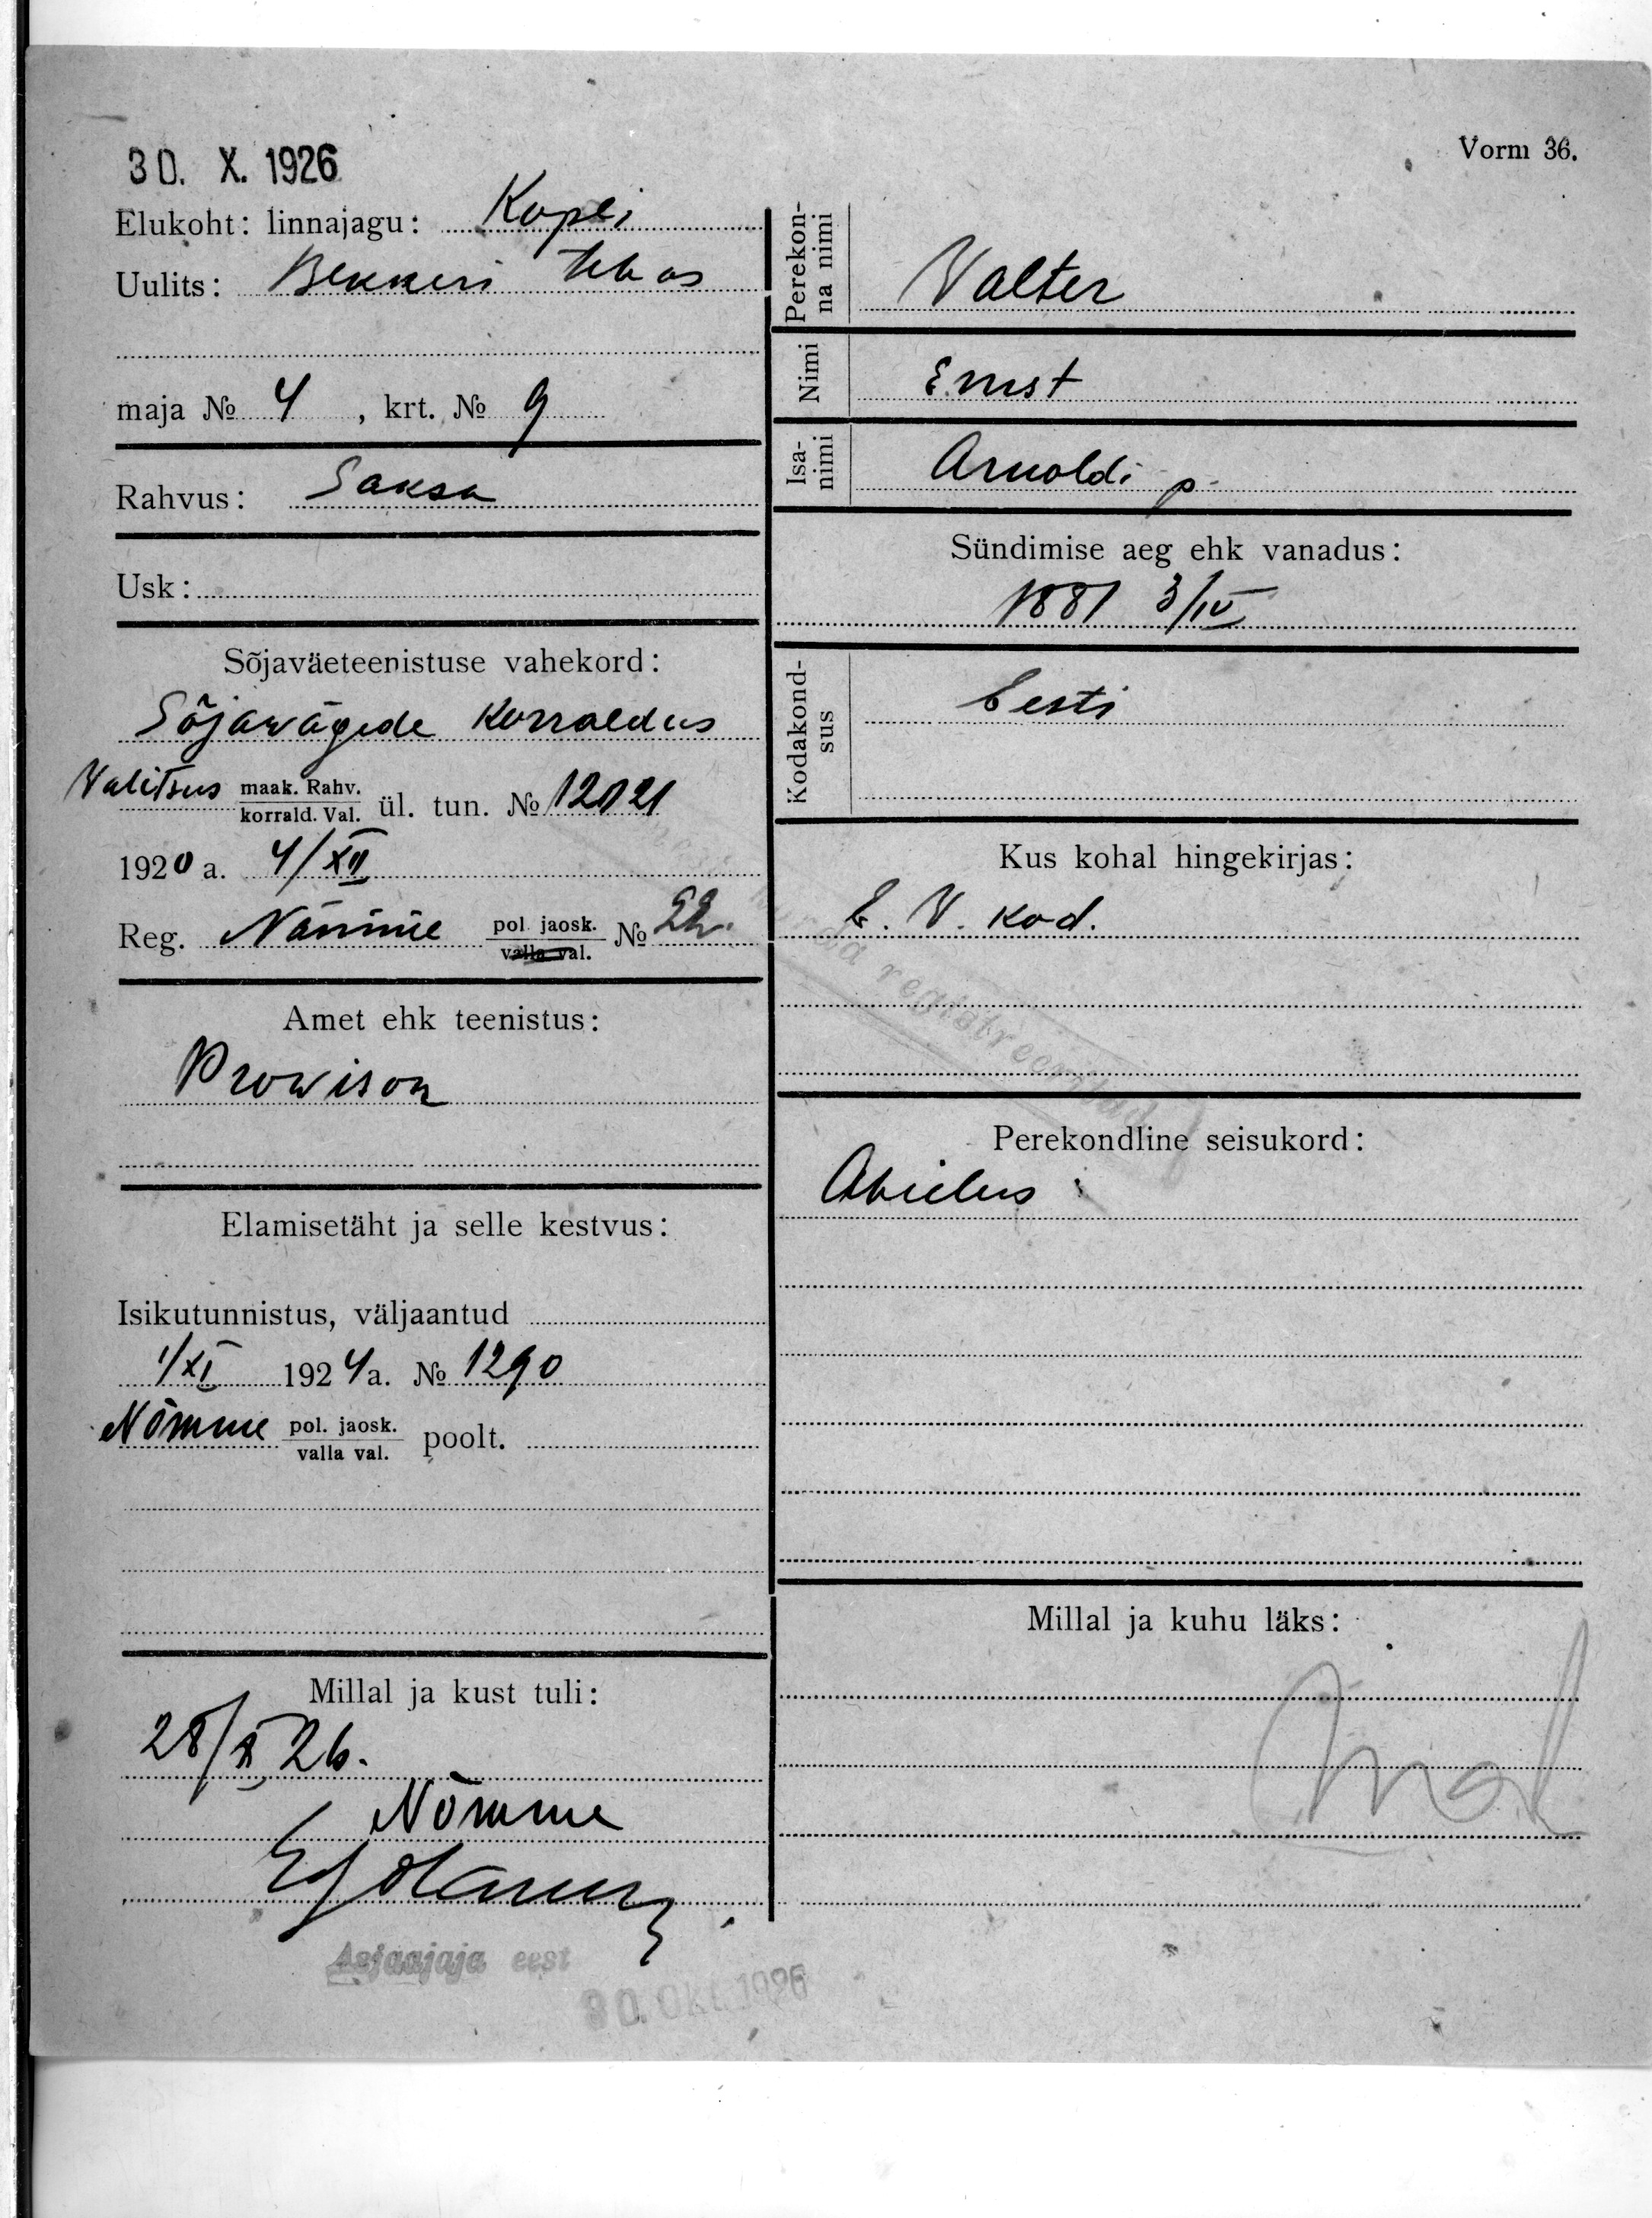 30. X. 1926
Vorm 36.
Elukoht: linnajagu: Kopli
Uulits: Bekkeri teh as
maja № 4, krt. № 9
Rahvus: Saksa
Usk:
Sõjaväeteenistuse vahekord:
Sõjawägede Korraldus
Valitsus maak. Rahv. korrald. Val. ül. tun. № 12021
1920 a. 4/XII
Reg. Nõmme pol. jaosk. valla val. № 22.
Amet ehk teenistus:
Prowisor
Elamisetäht ja selle kestvus:
Isikutunnistus, väljaantud
1/XI 1924 a. № 1290
Nõmme pol. jaosk. valla val. poolt.
Millal ja kust tuli:
28/X 26.
Nõmme
Asjaajaja eest
30. Okt. 1926
Perekonna nimi
Valter
Nimi
Ernst
Isanimi
Arnoldi p.
Sündimise aeg ehk vanadus:
1881 3/IV
Kodakondsus
Eesti
Kus kohal hingekirjas:
E. V. kod.
registreeritud
Perekondline seisukord:
Abielus
Millal ja kuhu läks: